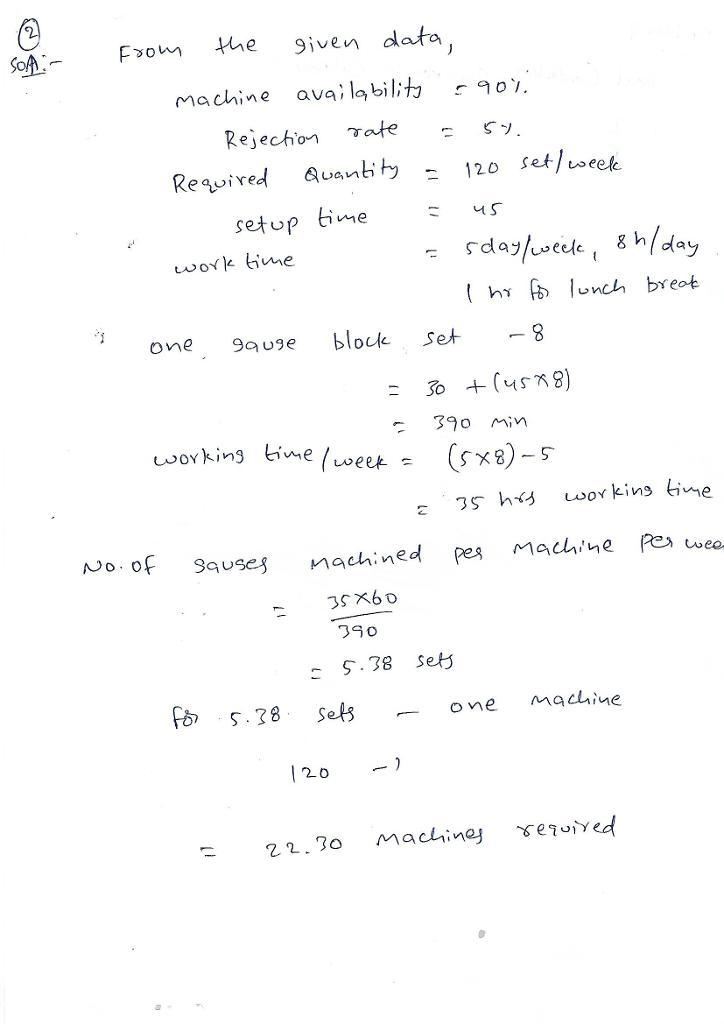 ②
Soln:- From the given data,
machine availability = 90%.
Rejection rate = 5%.
Required Quantity = 120 set/week
setup time = 45
work time = 5day/week, 8h/day
1 hr for lunch break
one gauge block set - 8
= 30 + (45×8)
= 390 min
working time/week = (5×8)-5
= 35 hrs working time
No. of gauges machined per machine per wee
= 35×60
390
= 5.38 sets
for 5.38 sets - one machine
120 -?
= 22.30 machines required